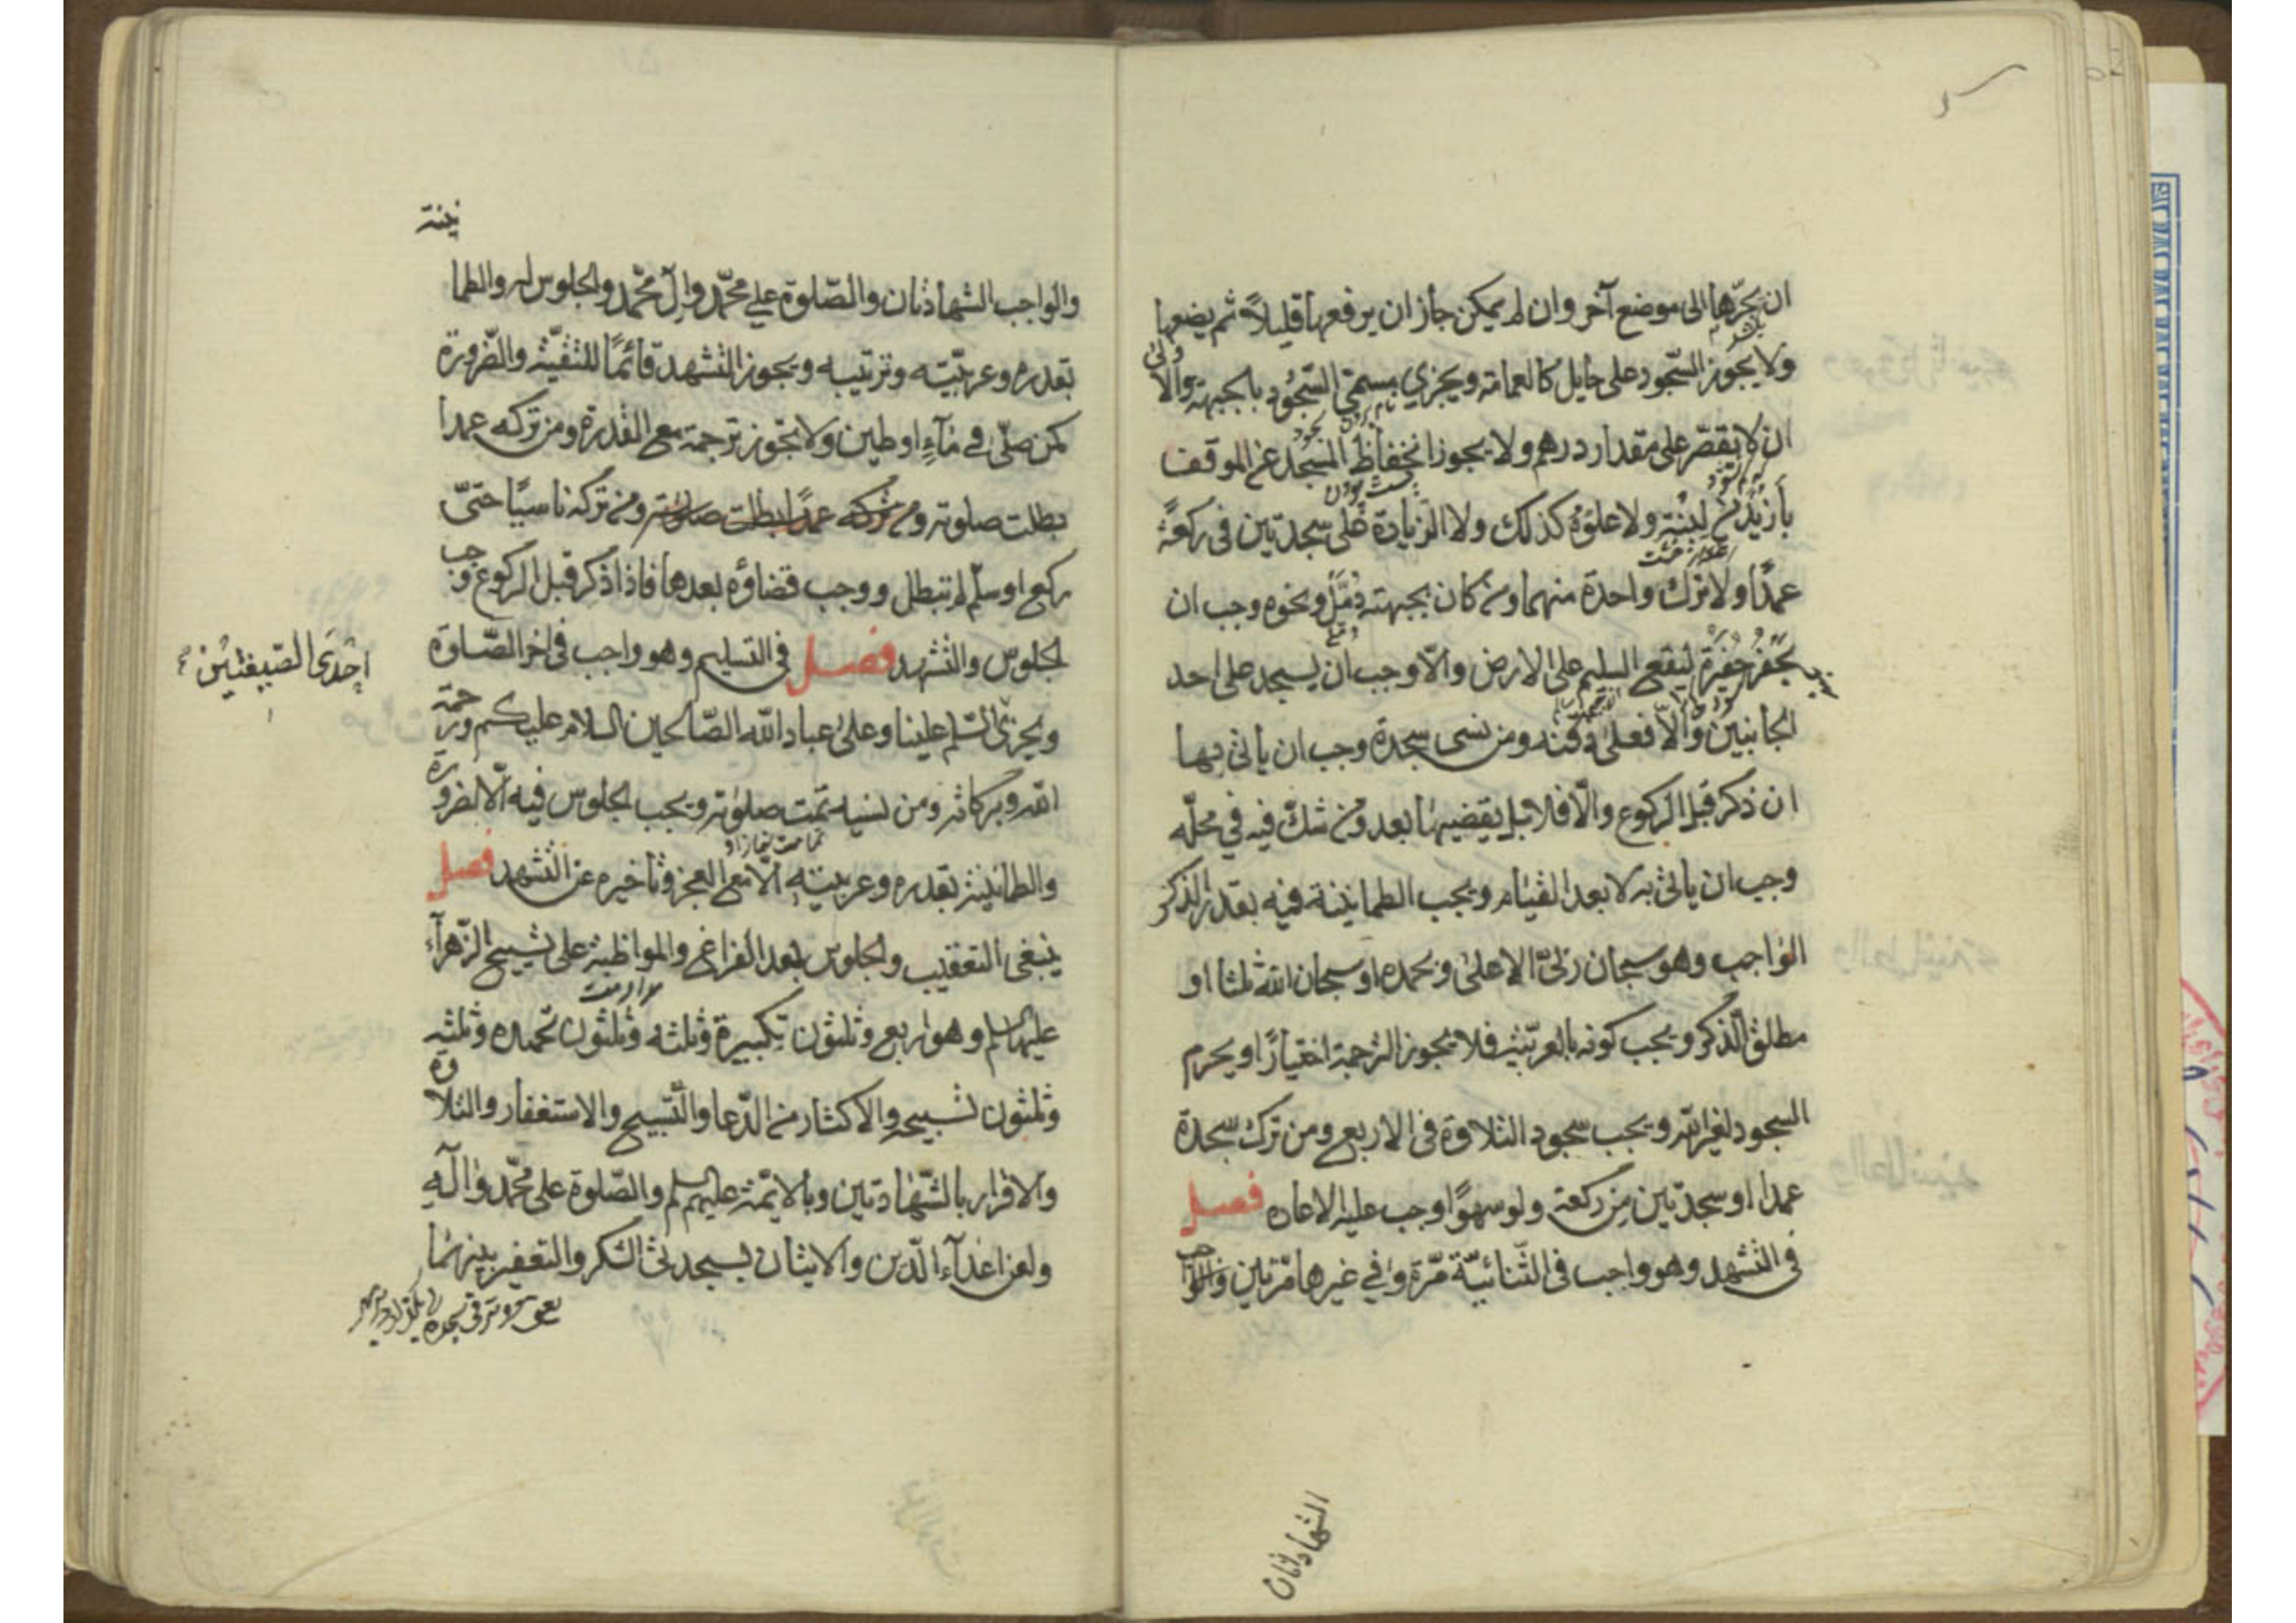 ان يجرّها الى موضع آخر وان لم يمكن جاز ان يرفعها قليلاً ثم يضعها
ولا يجوز السّجود على حايل كالعمامة ويجزي مسمّى السّجود بالجبهة والاولى
ان لا يقصر على مقدار درهم ولا يجوز انخفاظ المسجد عن الموقف
بأزيد من لبنة ولا علوّه كذلك ولا الزيادة على سجدتين في ركعة
عمدًا ولا ترك واحدة منهما ومن كان بجبهته دمّل ونحوه وجب ان
يحفر حفرة ليقع السليم على الارض والّا وجب ان يسجد على احد
الجانبين والّا فعلى ذقنه ومن نسى سجدة وجب ان يأتي بها
ان ذكر قبل الركوع والّا فلا بل يقضيها بعد ومن شكّ فيه في محلّه
وجب ان ياتي به لا بعد القيام ويجب الطمانينة فيه بقدر الذكر
الواجب وهو سبحان ربّي الاعلى وبحمده او سبحان الله ثلثا او
مطلق الذكر ويجب كونه بالعربيّة فلا يجوز الترجمة اختيارًا ويحرم
السجود لغير الله ويجب سجود التلاوة في الاربع ومن ترك سجدة
عمدا او سجدتين من ركعة ولو سهوًا وجب عليه الاعاده فصل
في التشهد وهو واجب في الثّنائيّة مّرة وفي غيرها مرّتين والواجب
الشهادتان
والواجب الشهادتان والصّلوة على محمّد وال محمّد والجلوس له والطما
نينة
بقدره وعربيّته وترتيبه ويجوز التشهد قائمًا للتقيّة والضّرورة
كمن صلّى في ماءٍ او طين ولا يجوز ترجمة مع القدرة ومن تركه عمدا
بطلت صلوته ومن تركه عمدًا بطلت صلوته ومن تركه ناسيًا حتىّ
ركع او سلّم لم تبطل ووجب قضاؤه بعدها فاذا ذكر قبل الركوع وجب
الجلوس والتشهد فصل في التسليم وهو واجب في اخر الصّلوة
احدى الصّيغتين
ويجزى السّلم علينا وعلى عباد الله الصّالحين السلام عليكم ورحمة
الله وبركاته ومن نسيه تمّت صلوته ويجب الجلوس فيه الّا لضرورة
والطمانينة بقدره وعربيته الّا مع العجز وتأخيره عن التشهد فصل
ينبغي التعقيب والجلوس بعد الفراغ والمواظبة على تسبيح الزّهرآء
عليها السلم وهو اربع وثلثون تكبيرة وثلثه وثلثون تحميده وثلثه
وثلثون تسبيحه والاكثار من الدّعا والتّسبيح والاستغفار والتلاوة
والاقرار بالشّهادتين وبالايمّة عليهم السلم والصّلوة على محمّد وآله
ولعن اعدآء الدّين والاتيان بسجدتي الشكر والتعفير بينهما